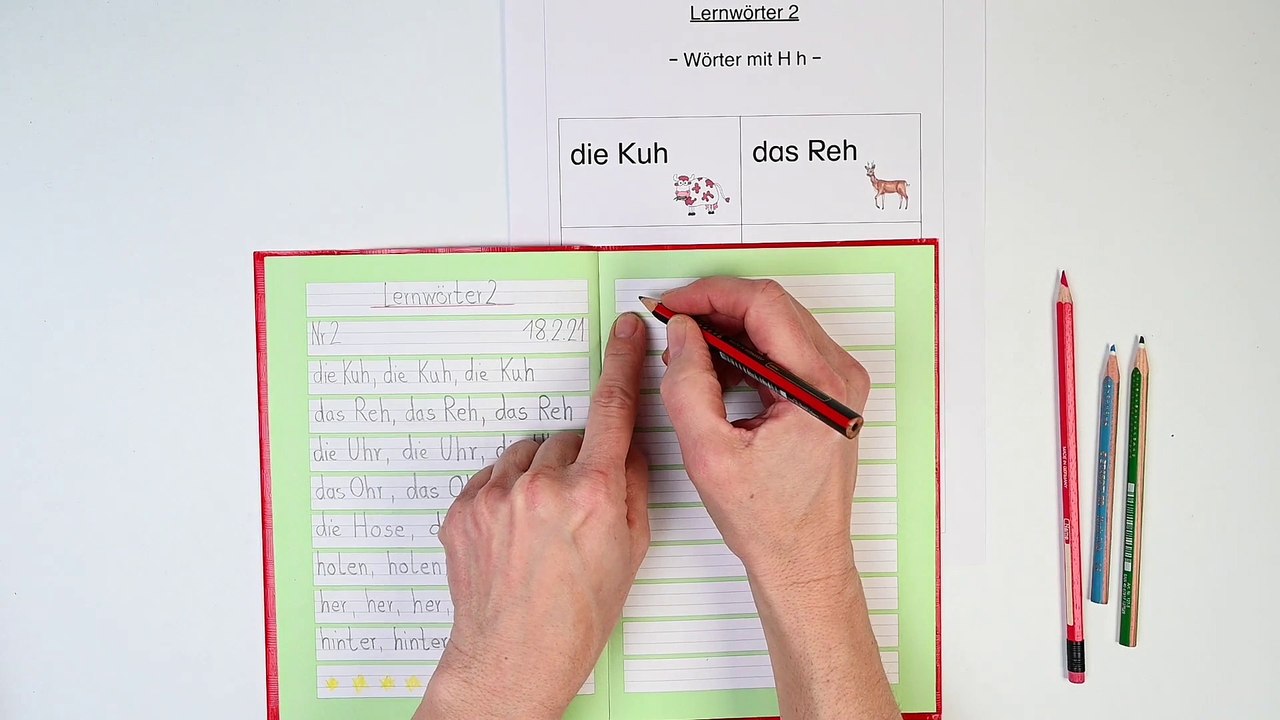 Lernwörter 2
- Wörter mit H h -
die Kuh
das Reh
Lernwörter 2
Nr 2 18.2.21
die Kuh, die Kuh, die Kuh
das Reh, das Reh, das Reh
die Uhr, die Uhr,
das Ohr, das
die Hose,
holen, holen
her, her, her,
hinter, hinter